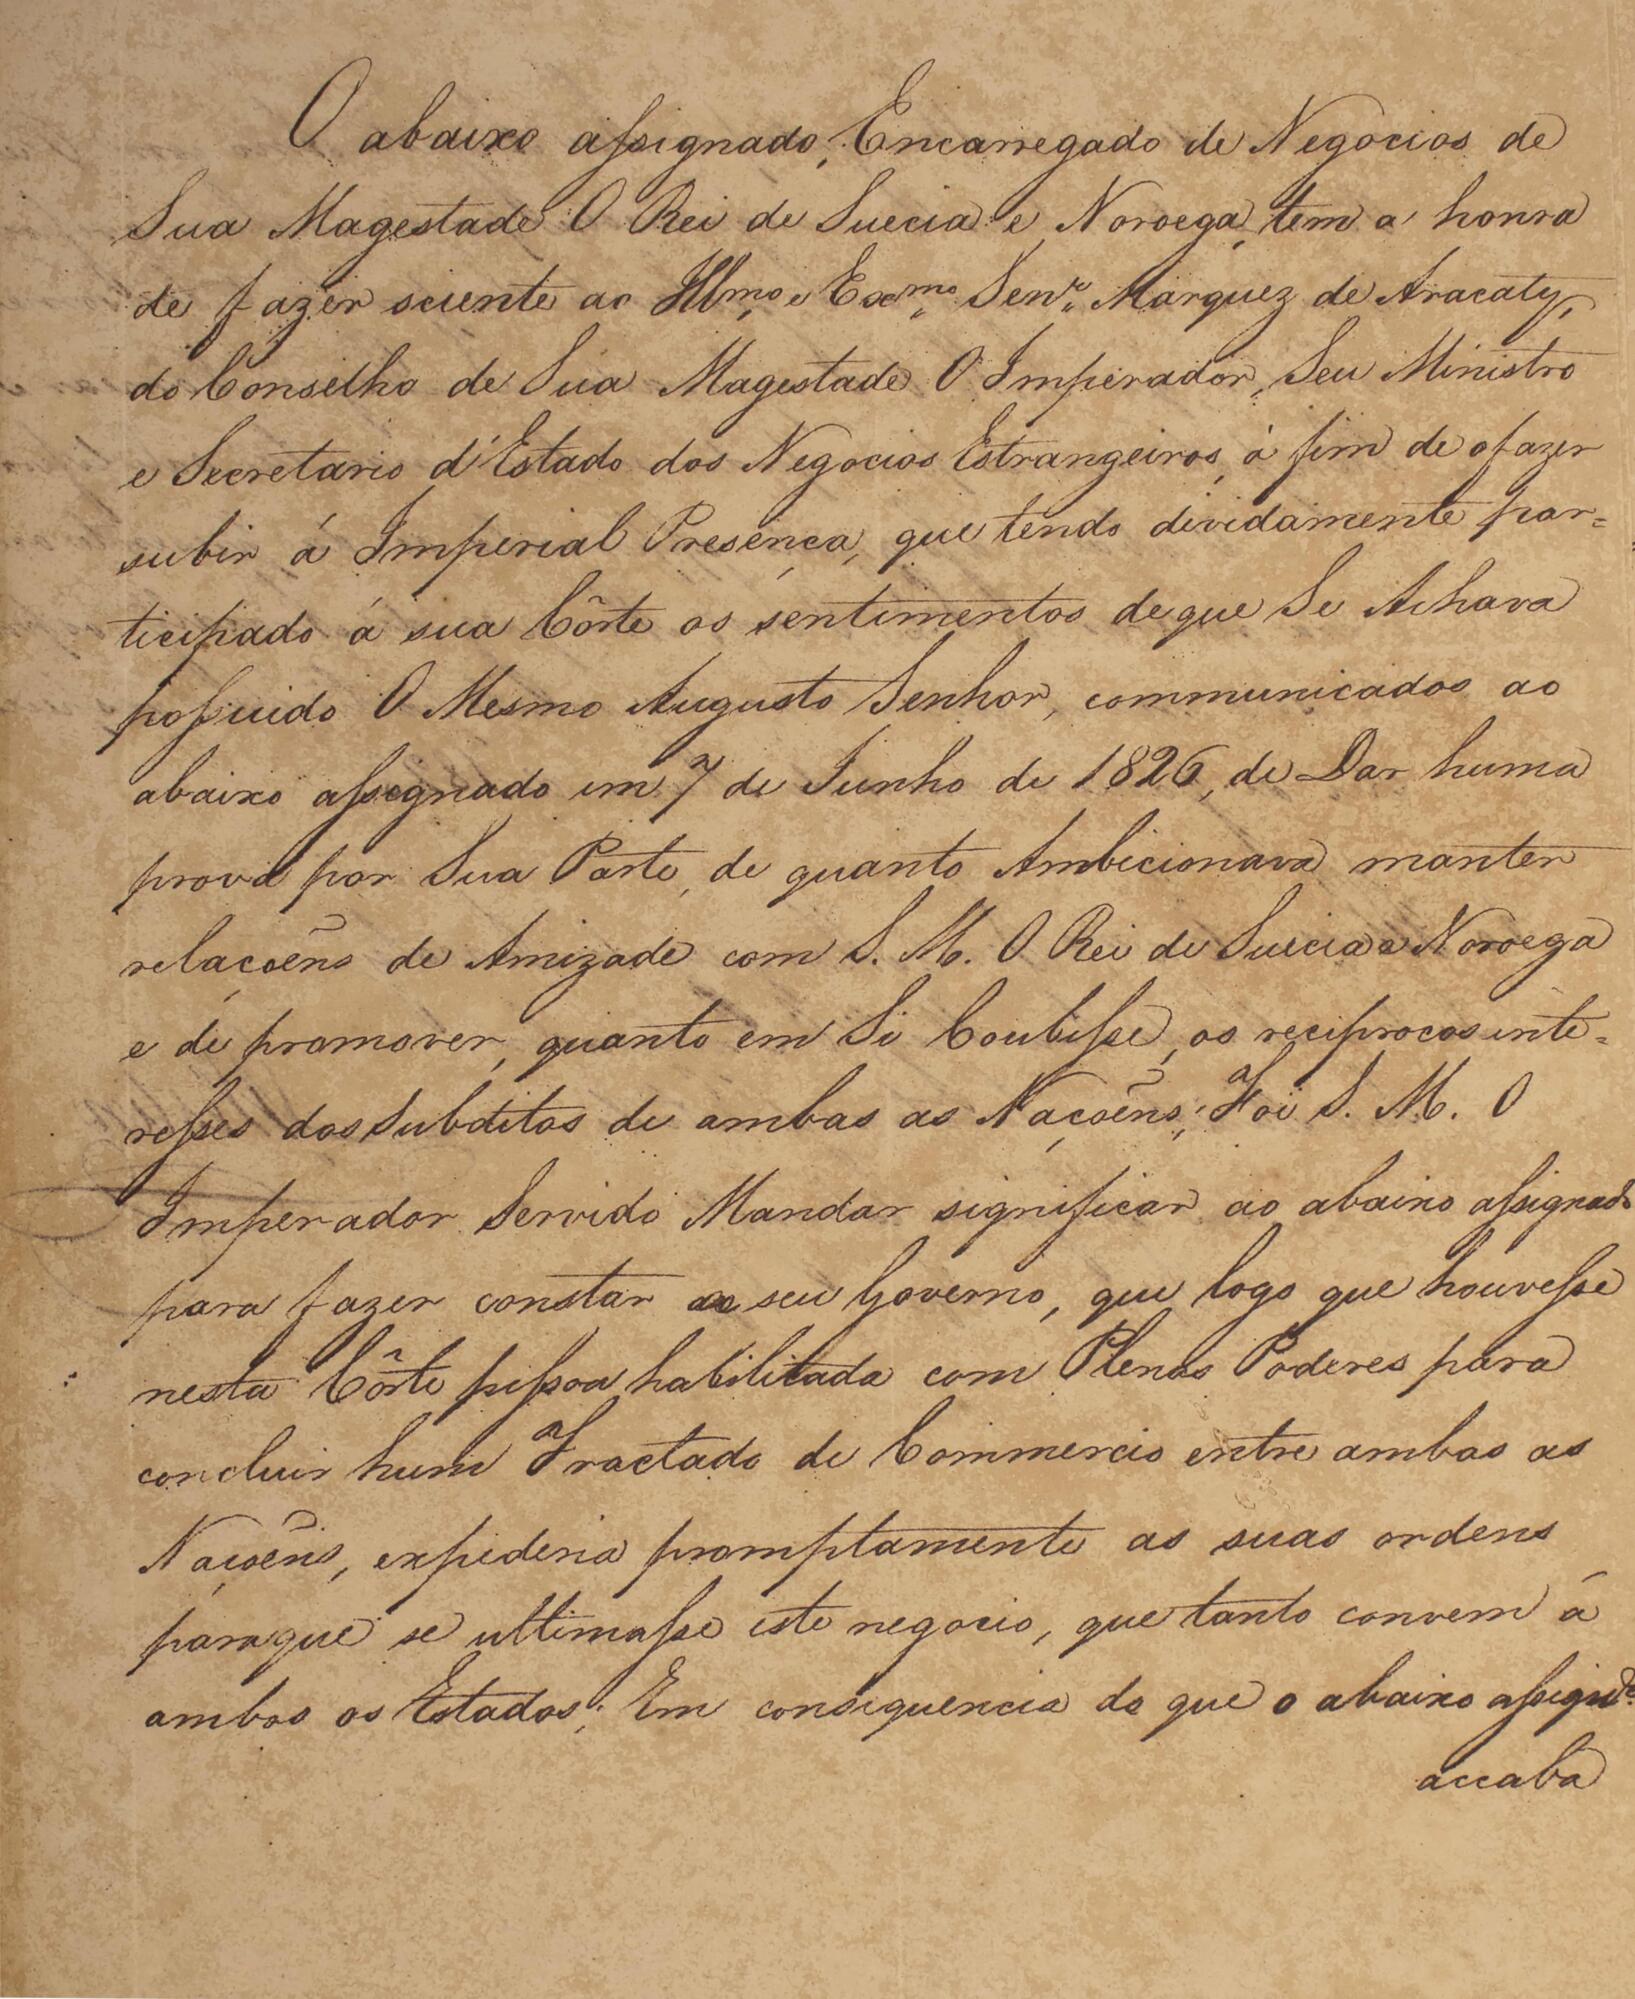 O abaixo assignado, Encarregado de Negocios de
Sua Magestade O Rei de Suecia e Noroega, tem a honra
de fazer sciente ao Illmo e Exmo Senr Marquez de Aracaty,
do Conselho de Sua Magestade O Imperador, Seu Ministro
e Secretario d'Estado dos Negocios Estrangeiros, á fim de o fazer
subir á Imperial Presença, que tendo dividamente par=
ticipado á sua Côrte os sentimentos de que Se Achava
possuido O Mesmo Augusto Senhor, communicados ao
abaixo assignado em 7 de Junho de 1826, de Dar huma
prova por Sua Parte, de quanto Ambicionava manter
relaçoẽns de Amizade com S. M. O Rei de Suecia e Noroega
e de promover, quanto em Si Coubesse, os reciprocos inte=
resses dos Subditos de ambas as Naçoẽns; Foi S. M. O
Imperador Servido Mandar significar ao abaixo assignado
para fazer constar ao seu Governo, que logo que houvesse
nesta Côrte pessoa habilitada com Plenos Poderes para
concluir hum Tractado de Commercio entre ambas as
Naçoẽns, expederia promptamente as suas ordens
paraque se ultimasse este negocio, que tanto convem á
ambos os Estados; Em consequencia do que o abaixo assigndo
accaba